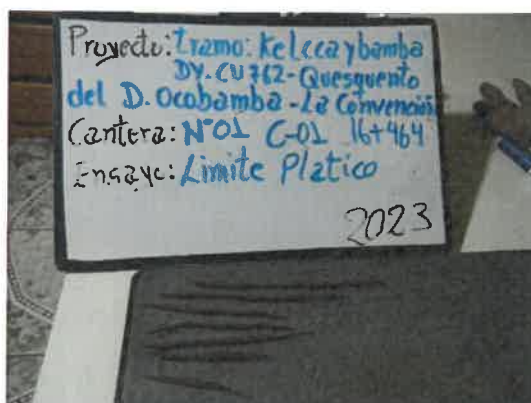 Proyecto: Tramo: Kelccaybamba
DV. CU 762-Quesquento
del D. Ocobamba - La Convención
Cantera: N°01 C-01 16+464
Ensaye: Limite Platico
2023